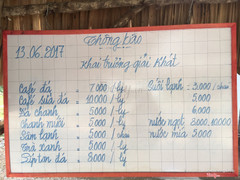 13.06.2017
Thông báo
Khai trương giải khát
Cafe đá 7.000/ly
Cafe sữa đá 10.000/ly
Đá chanh 5.000/ly
Chanh muối 7.000/ly
Sâm lạnh 5.000/
Trà xanh 5.000/ly
đá 8000/ly
lạnh 5.000/chai
5.000
6.000
nước ngọt 8000, 10000
nước mía 5.000